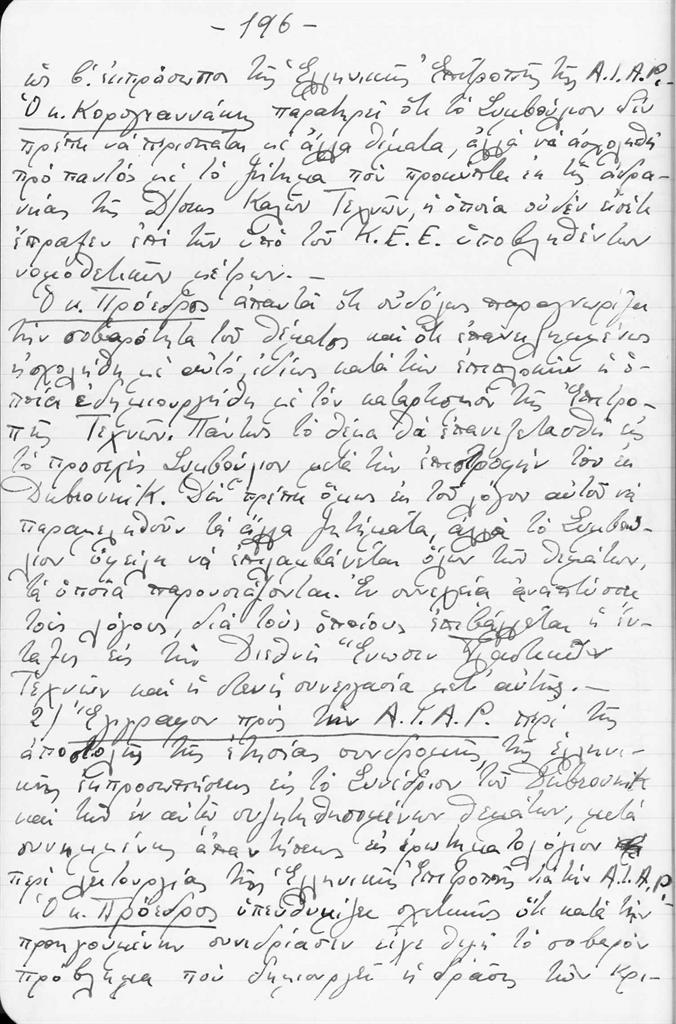 - 196 -
ὡς β. ἐκπρόσωποι τῆς Ἑλληνικῆς Ἐπιτροπῆς τῆς A.I.A.P.-
Ὁ κ. Κορογιαννάκης παρατηρεῖ ὅτι τό Συμβούλιον δέν
πρέπει νά περισπᾶται μέ ἄλλα θέματα, ἀλλά νά ἀσχοληθῇ
πρό παντός μέ τό ζήτημα πού προκύπτει ἐκ τῆς ἀδρα-
νείας τῆς Δ/σεως Καλῶν Τεχνῶν, ἡ ὁποία οὐδέν εἰσέτι
ἔπραξεν ἐπί τῶν ὑπό τοῦ Κ.Ε.Ε. ὑποβληθέντων
νομοθετικῶν μέτρων.-
Ὁ κ. Πρόεδρος ἀπαντᾶ ὅτι οὐδόλως παραγνωρίζει
τήν σοβαρότητα τοῦ θέματος καί ὅτι ἐπανειλημμένως
ἠσχολήθη μέ αὐτό, ἰδίως κατά τήν ἐμπλοκήν ἡ ὁ-
ποία ἐδημιουργήθη μέ τόν καταρτισμόν τῆς Ἐπιτρο-
πῆς Τεχνῶν. Πάντως τό θέμα θά ἐπανεξετασθῇ εἰς
τό προσεχές Συμβούλιον μετά τήν ἐπιστροφήν του ἐκ
Dubrovnik. Δέν πρέπει ὅμως ἐκ τοῦ λόγου αὐτοῦ νά
παραμεληθοῦν τά ἄλλα ζητήματα, ἀλλά τό Συμβού-
λιον ὀφείλει νά ἐπιλαμβάνεται ὅλων τῶν θεμάτων,
τά ὁποῖα παρουσιάζονται. Ἐν συνεχείᾳ ἀναπτύσσει
τούς λόγους, διά τούς ὁποίους ἐπιβάλλεται ἡ ἔν-
ταξις εἰς τήν Διεθνῆ Ἕνωσιν Πλαστικῶν
Τεχνῶν καί ἡ στενή συνεργασία μετ' αὐτῆς.-
2) Ἔγγραφον πρός τήν A.I.A.P. περί τῆς
ἀποστολῆς τῆς ἐτησίας συνδρομῆς, τῆς ἑλληνι-
κῆς ἐκπροσωπήσεως εἰς τό Συνέδριον τοῦ Dubrovnik
καί τῶν ἐν αὐτῷ συζητηθησομένων θεμάτων, μετά
συνημμένης ἀπαντήσεως εἰς ἐρωτηματολόγιον
περί λειτουργίας τῆς Ἑλληνικῆς Ἐπιτροπῆς διά τήν A.I.A.P.-
Ὁ κ. Πρόεδρος ὑπενθυμίζει σχετικῶς ὅτι κατά τήν
προηγουμένην συνεδρίασιν εἶχε θιγῆ τό σοβαρόν
πρόβλημα πού δημιουργεῖ ἡ δρᾶσις τῶν κρι-